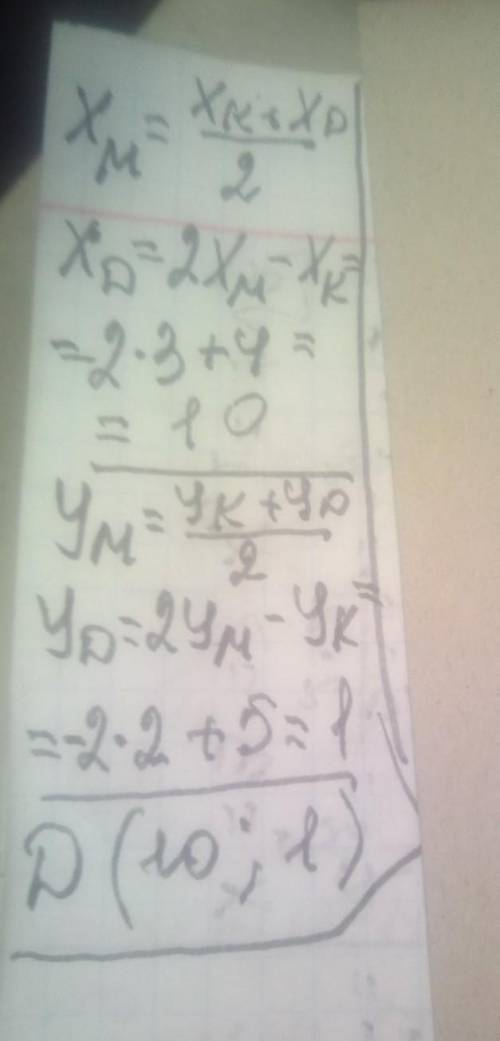 X_M = (X_K + X_D)/2
X_D = 2X_M - X_K =
= 2·3 + 4 =
= 10
y_M = (y_K + y_D)/2
y_D = 2y_M - y_K =
= -2·2 + 5 = 1
D (10 ; 1)